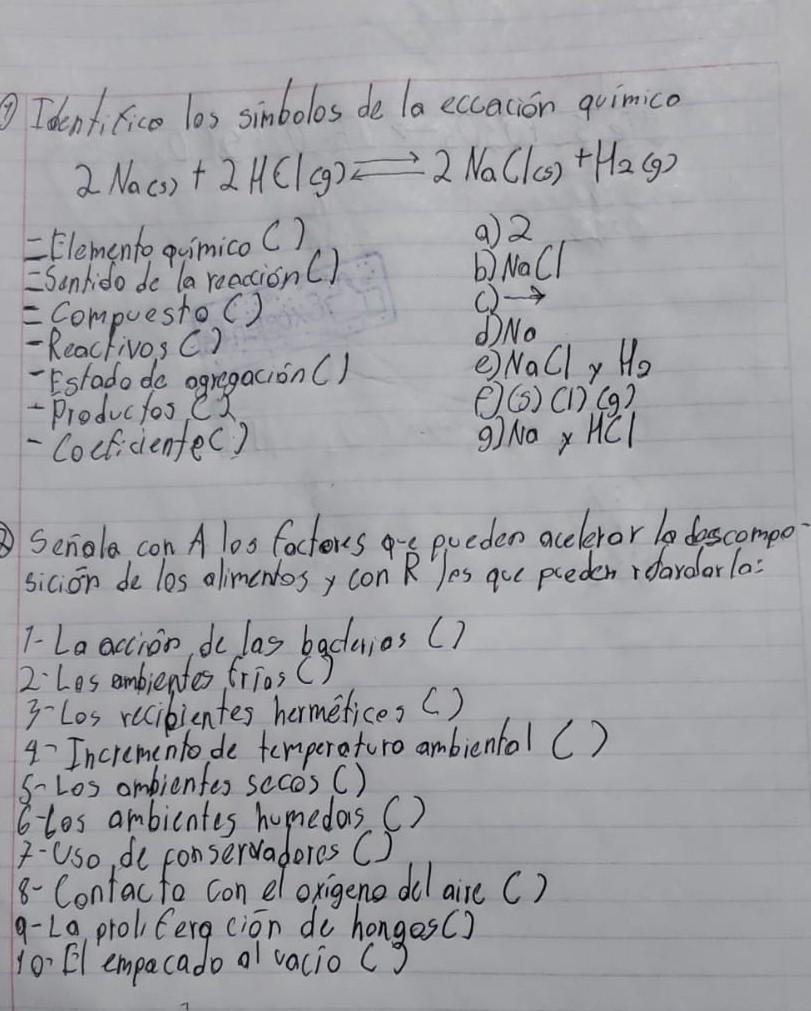 1) Identifico los símbolos de la eccación químico
2 Na(s) + 2 HCl(g) ⇌ 2 NaCl(s) + H2(g)
= Elemento químico ( )
a) 2
= Sentido de la reacción ( )
b) NaCl
= Compuesto ( )
c) →
- Reactivos ( )
d) Na
- Estado de agregación ( )
e) NaCl y H2
- Productos ( )
f) (s) (l) (g)
- Coeficiente ( )
g) Na y HCl
2) Señala con A los factores que pueden acelerar la descompo-
sición de los alimentos y con R los que pueden retardarla:
1- La acción de las bacterias ( )
2- Los ambientes fríos ( )
3- Los recipientes herméticos ( )
4- Incremento de temperatura ambiental ( )
5- Los ambientes secos ( )
6- Los ambientes humedos ( )
7- Uso de conservadores ( )
8- Contacto con el oxígeno del aire ( )
9- La proliferación de hongos ( )
10- El empacado al vacío ( )